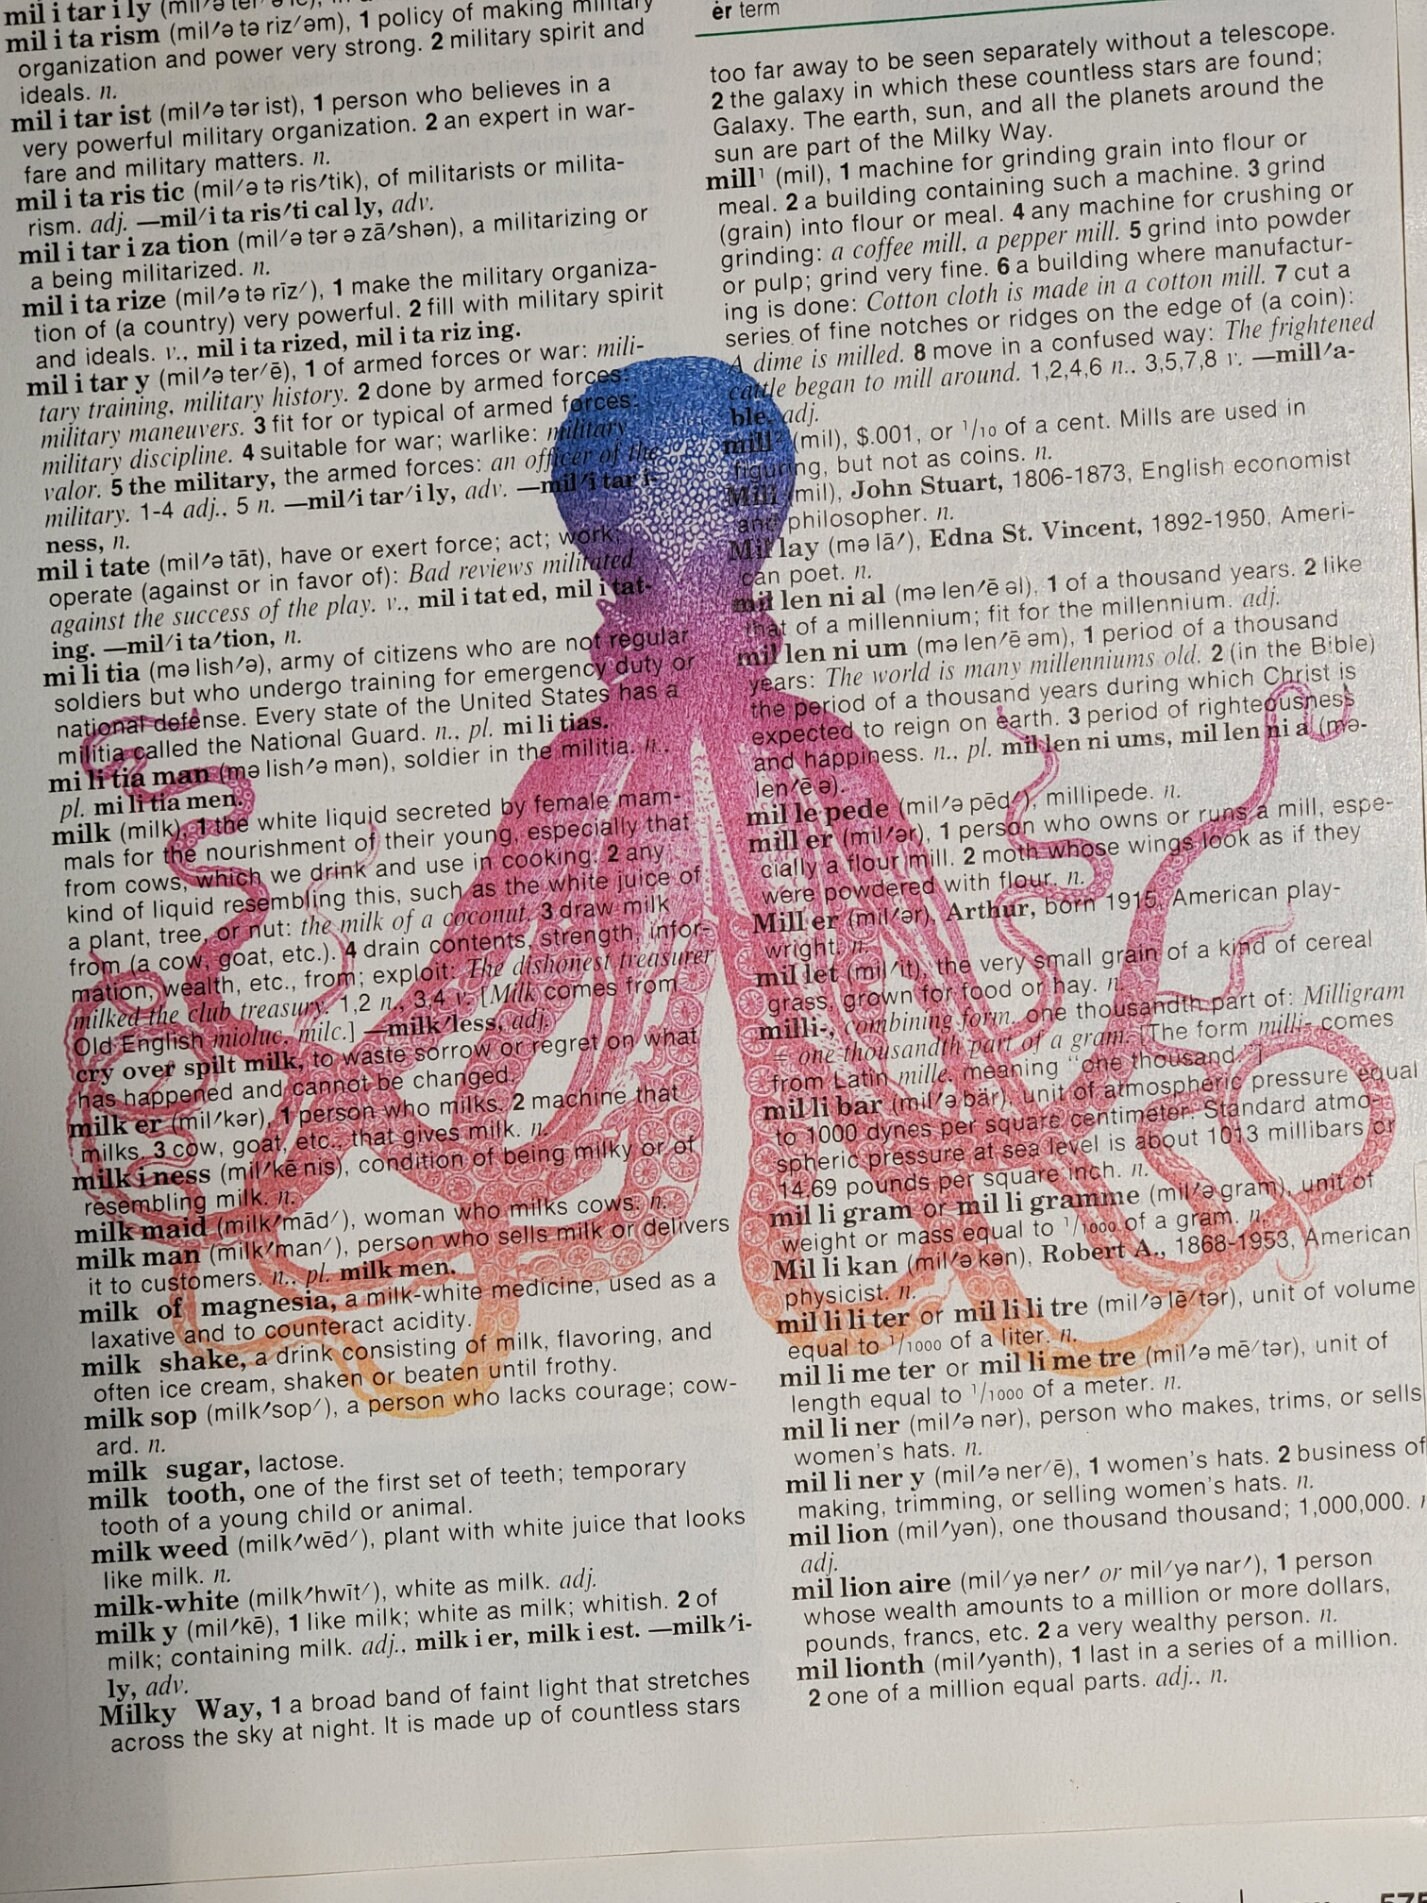 mil i tar i ly
mil i ta rism (mil′ə tə riz′əm), 1 policy of making military
organization and power very strong. 2 military spirit and
ideals. n.
mil i tar ist (mil′ə tər ist), 1 person who believes in a
very powerful military organization. 2 an expert in war-
fare and military matters. n.
mil i ta ris tic (mil′ə tə ris′tik), of militarists or milita-
rism. adj. —mil′i ta ris′ti cal ly, adv.
mil i tar i za tion (mil′ə tər ə zā′shən), a militarizing or
a being militarized. n.
mil i ta rize (mil′ə tə rīz′), 1 make the military organiza-
tion of (a country) very powerful. 2 fill with military spirit
and ideals. v., mil i ta rized, mil i ta riz ing.
mil i tar y (mil′ə ter′ē), 1 of armed forces or war: mili-
tary training, military history. 2 done by armed forces:
military maneuvers. 3 fit for or typical of armed forces:
military discipline. 4 suitable for war; warlike: military
valor. 5 the military, the armed forces: an officer of the
military. 1-4 adj., 5 n. —mil′i tar′i ly, adv. —mil′i tar′i-
ness, n.
mil i tate (mil′ə tāt), have or exert force; act; work;
operate (against or in favor of): Bad reviews militated
against the success of the play. v., mil i tat ed, mil i tat-
ing. —mil′i ta′tion, n.
mi li tia (mə lish′ə), army of citizens who are not regular
soldiers but who undergo training for emergency duty or
national defense. Every state of the United States has a
militia called the National Guard. n., pl. mi li tias.
mi li tia man (mə lish′ə mən), soldier in the militia. n.,
pl. mi li tia men.
milk (milk), 1 the white liquid secreted by female mam-
mals for the nourishment of their young, especially that
from cows, which we drink and use in cooking. 2 any
kind of liquid resembling this, such as the white juice of
a plant, tree, or nut: the milk of a coconut. 3 draw milk
from (a cow, goat, etc.). 4 drain contents, strength, infor-
mation, wealth, etc., from; exploit: The dishonest treasurer
milked the club treasury. 1,2 n., 3,4 v. [Milk comes from
Old English mioluc, milc.] —milk′less, adj.
cry over spilt milk, to waste sorrow or regret on what
has happened and cannot be changed.
milk er (mil′kər), 1 person who milks. 2 machine that
milks. 3 cow, goat, etc., that gives milk. n.
milk i ness (mil′kē nis), condition of being milky or of
resembling milk. n.
milk maid (milk′mād′), woman who milks cows. n.
milk man (milk′man′), person who sells milk or delivers
it to customers. n., pl. milk men.
milk of magnesia, a milk-white medicine, used as a
laxative and to counteract acidity.
milk shake, a drink consisting of milk, flavoring, and
often ice cream, shaken or beaten until frothy.
milk sop (milk′sop′), a person who lacks courage; cow-
ard. n.
milk sugar, lactose.
milk tooth, one of the first set of teeth; temporary
tooth of a young child or animal.
milk weed (milk′wēd′), plant with white juice that looks
like milk. n.
milk-white (milk′hwīt′), white as milk. adj.
milk y (mil′kē), 1 like milk; white as milk; whitish. 2 of
milk; containing milk. adj., milk i er, milk i est. —milk′i-
ly, adv.
Milky Way, 1 a broad band of faint light that stretches
across the sky at night. It is made up of countless stars
ėr term
too far away to be seen separately without a telescope.
2 the galaxy in which these countless stars are found;
Galaxy. The earth, sun, and all the planets around the
sun are part of the Milky Way.
mill¹ (mil), 1 machine for grinding grain into flour or
meal. 2 a building containing such a machine. 3 grind
(grain) into flour or meal. 4 any machine for crushing or
grinding: a coffee mill, a pepper mill. 5 grind into powder
or pulp; grind very fine. 6 a building where manufactur-
ing is done: Cotton cloth is made in a cotton mill. 7 cut a
series of fine notches or ridges on the edge of (a coin):
A dime is milled. 8 move in a confused way: The frightened
cattle began to mill around. 1,2,4,6 n., 3,5,7,8 v. —mill′a-
ble, adj.
mill² (mil), $.001, or 1/10 of a cent. Mills are used in
figuring, but not as coins. n.
Mill (mil), John Stuart, 1806-1873, English economist
and philosopher. n.
Mil lay (mə lā′), Edna St. Vincent, 1892-1950, Ameri-
can poet. n.
mil len ni al (mə len′ē əl), 1 of a thousand years. 2 like
that of a millennium; fit for the millennium. adj.
mil len ni um (mə len′ē əm), 1 period of a thousand
years: The world is many millenniums old. 2 (in the Bible)
the period of a thousand years during which Christ is
expected to reign on earth. 3 period of righteousness
and happiness. n., pl. mil len ni ums, mil len ni a (mə-
len′ē ə).
mil le pede (mil′ə pēd′), millipede. n.
mill er (mil′ər), 1 person who owns or runs a mill, espe-
cially a flour mill. 2 moth whose wings look as if they
were powdered with flour. n.
Mill er (mil′ər), Arthur, born 1915, American play-
wright. n.
mil let (mil′it), the very small grain of a kind of cereal
grass, grown for food or hay. n.
milli-, combining form. one thousandth part of: Milligram
= one-thousandth part of a gram. [The form milli- comes
from Latin mille, meaning “one thousand.”]
mil li bar (mil′ə bär), unit of atmospheric pressure equal
to 1000 dynes per square centimeter. Standard atmo-
spheric pressure at sea level is about 1013 millibars or
14.69 pounds per square inch. n.
mil li gram or mil li gramme (mil′ə gram), unit of
weight or mass equal to 1/1000 of a gram. n.
Mil li kan (mil′ə kən), Robert A., 1868-1953, American
physicist. n.
mil li li ter or mil li li tre (mil′ə lē′tər), unit of volume
equal to 1/1000 of a liter. n.
mil li me ter or mil li me tre (mil′ə mē′tər), unit of
length equal to 1/1000 of a meter. n.
mil li ner (mil′ə nər), person who makes, trims, or sells
women's hats. n.
mil li ner y (mil′ə ner′ē), 1 women's hats. 2 business of
making, trimming, or selling women's hats. n.
mil lion (mil′yən), one thousand thousand; 1,000,000.
adj.
mil lion aire (mil′yə ner′ or mil′yə nar′), 1 person
whose wealth amounts to a million or more dollars,
pounds, francs, etc. 2 a very wealthy person. n.
mil lionth (mil′yənth), 1 last in a series of a million.
2 one of a million equal parts. adj., n.